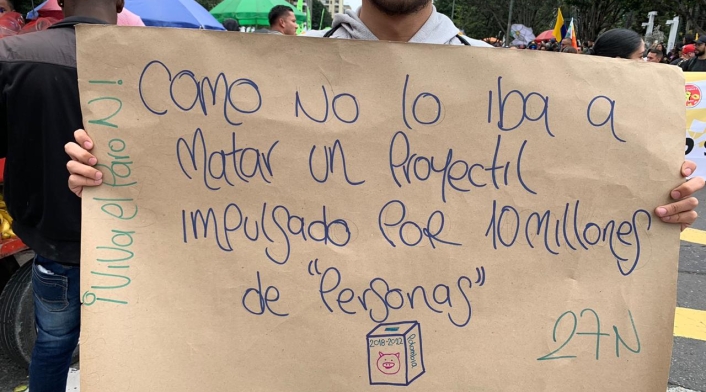 ¡Viva el Paro N!
Como no lo iba a
matar un Proyectil
impulsado por 10 millones
de "Personas"
2018-2012
Polombia
27N